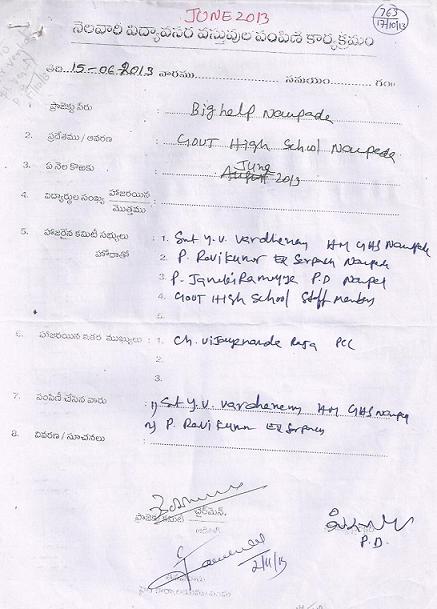 JUNE 2013
763
17/10/13
నెలవారీ విద్యావసర వస్తువుల పంపిణీ కార్యక్రమం
తేది 15-06-2013 వారము సమయం గం॥
ప్రాజెక్టు పేరు : Bighelp Naupada
2. ప్రదేశము / ఆవరణ : GOUT HIGH School Naupada
3. ఏ నెల కొఱకు : June 2013
4. విద్యార్ధుల సంఖ్య హాజరయిన / మొత్తము :
5. హాజరైన కమిటీ సభ్యులు : 1. Smt Y.V. Vardheneny HM GHS Naupada
హోదాతో 2. P. Ravikumar Ex Serpanch Naupada
3. P. Janakiramayya P.D Naupad
4. GOUT HIGH School Staff Members
5.
6. హాజరయిన ఇతర ముఖ్యులు : 1. Ch. Vijayananda Raja PCC
2.
3.
7. పంపిణీ చేసిన వారు : 1) Smt Y.V. Vardheneny HM GHS Naupada
2) P. Ravi Kumar Ex Serpanch
8. వివరణ / సూచనలు :
ప్రాజెక్టు కమిటీ ఛైర్మెన్.
P.D.
2/11/13